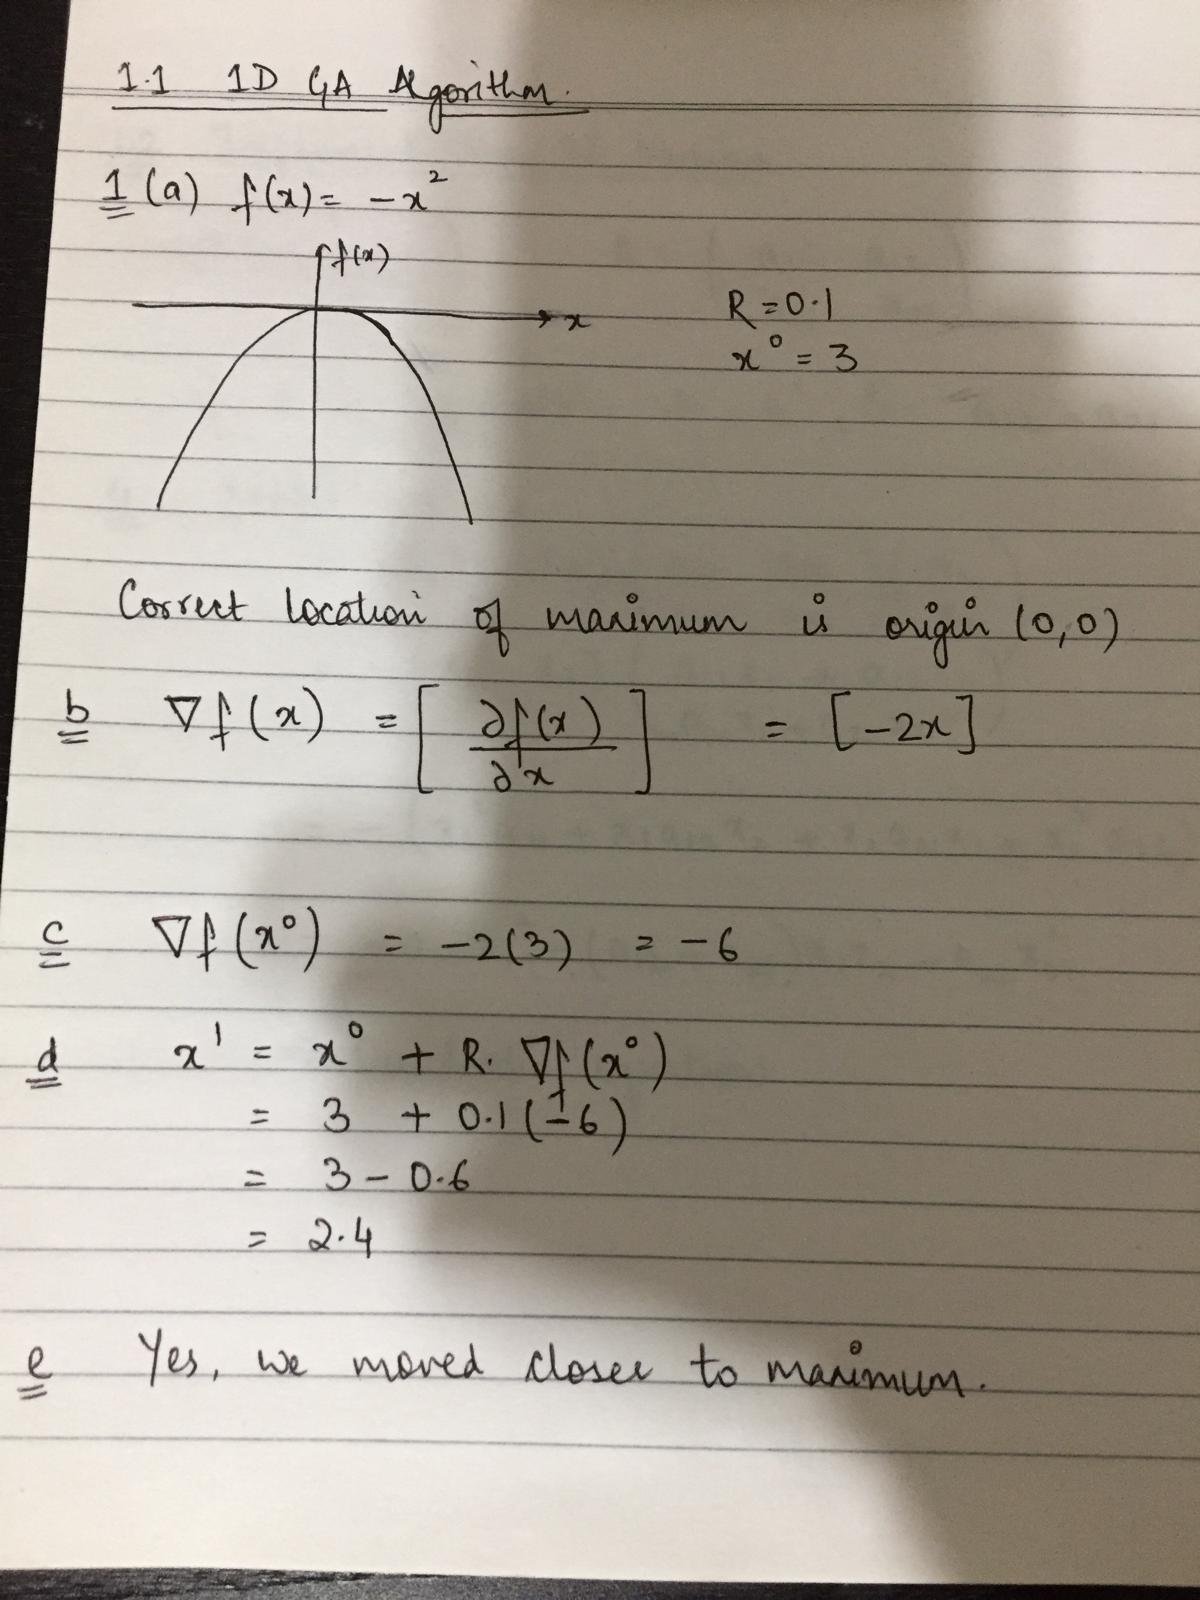 1.1 1D GA Algorithm.
1 (a) f(x) = -x²
f(x)
x
R = 0.1
x⁰ = 3
Correct location of maximum is origin (0,0)
b ∇f(x) = [ ∂f(x)/∂x ] = [-2x]
c ∇f(x⁰) = -2(3) = -6
d x¹ = x⁰ + R. ∇f(x⁰)
= 3 + 0.1(-6)
= 3 - 0.6
= 2.4
e Yes, we moved closer to maximum.